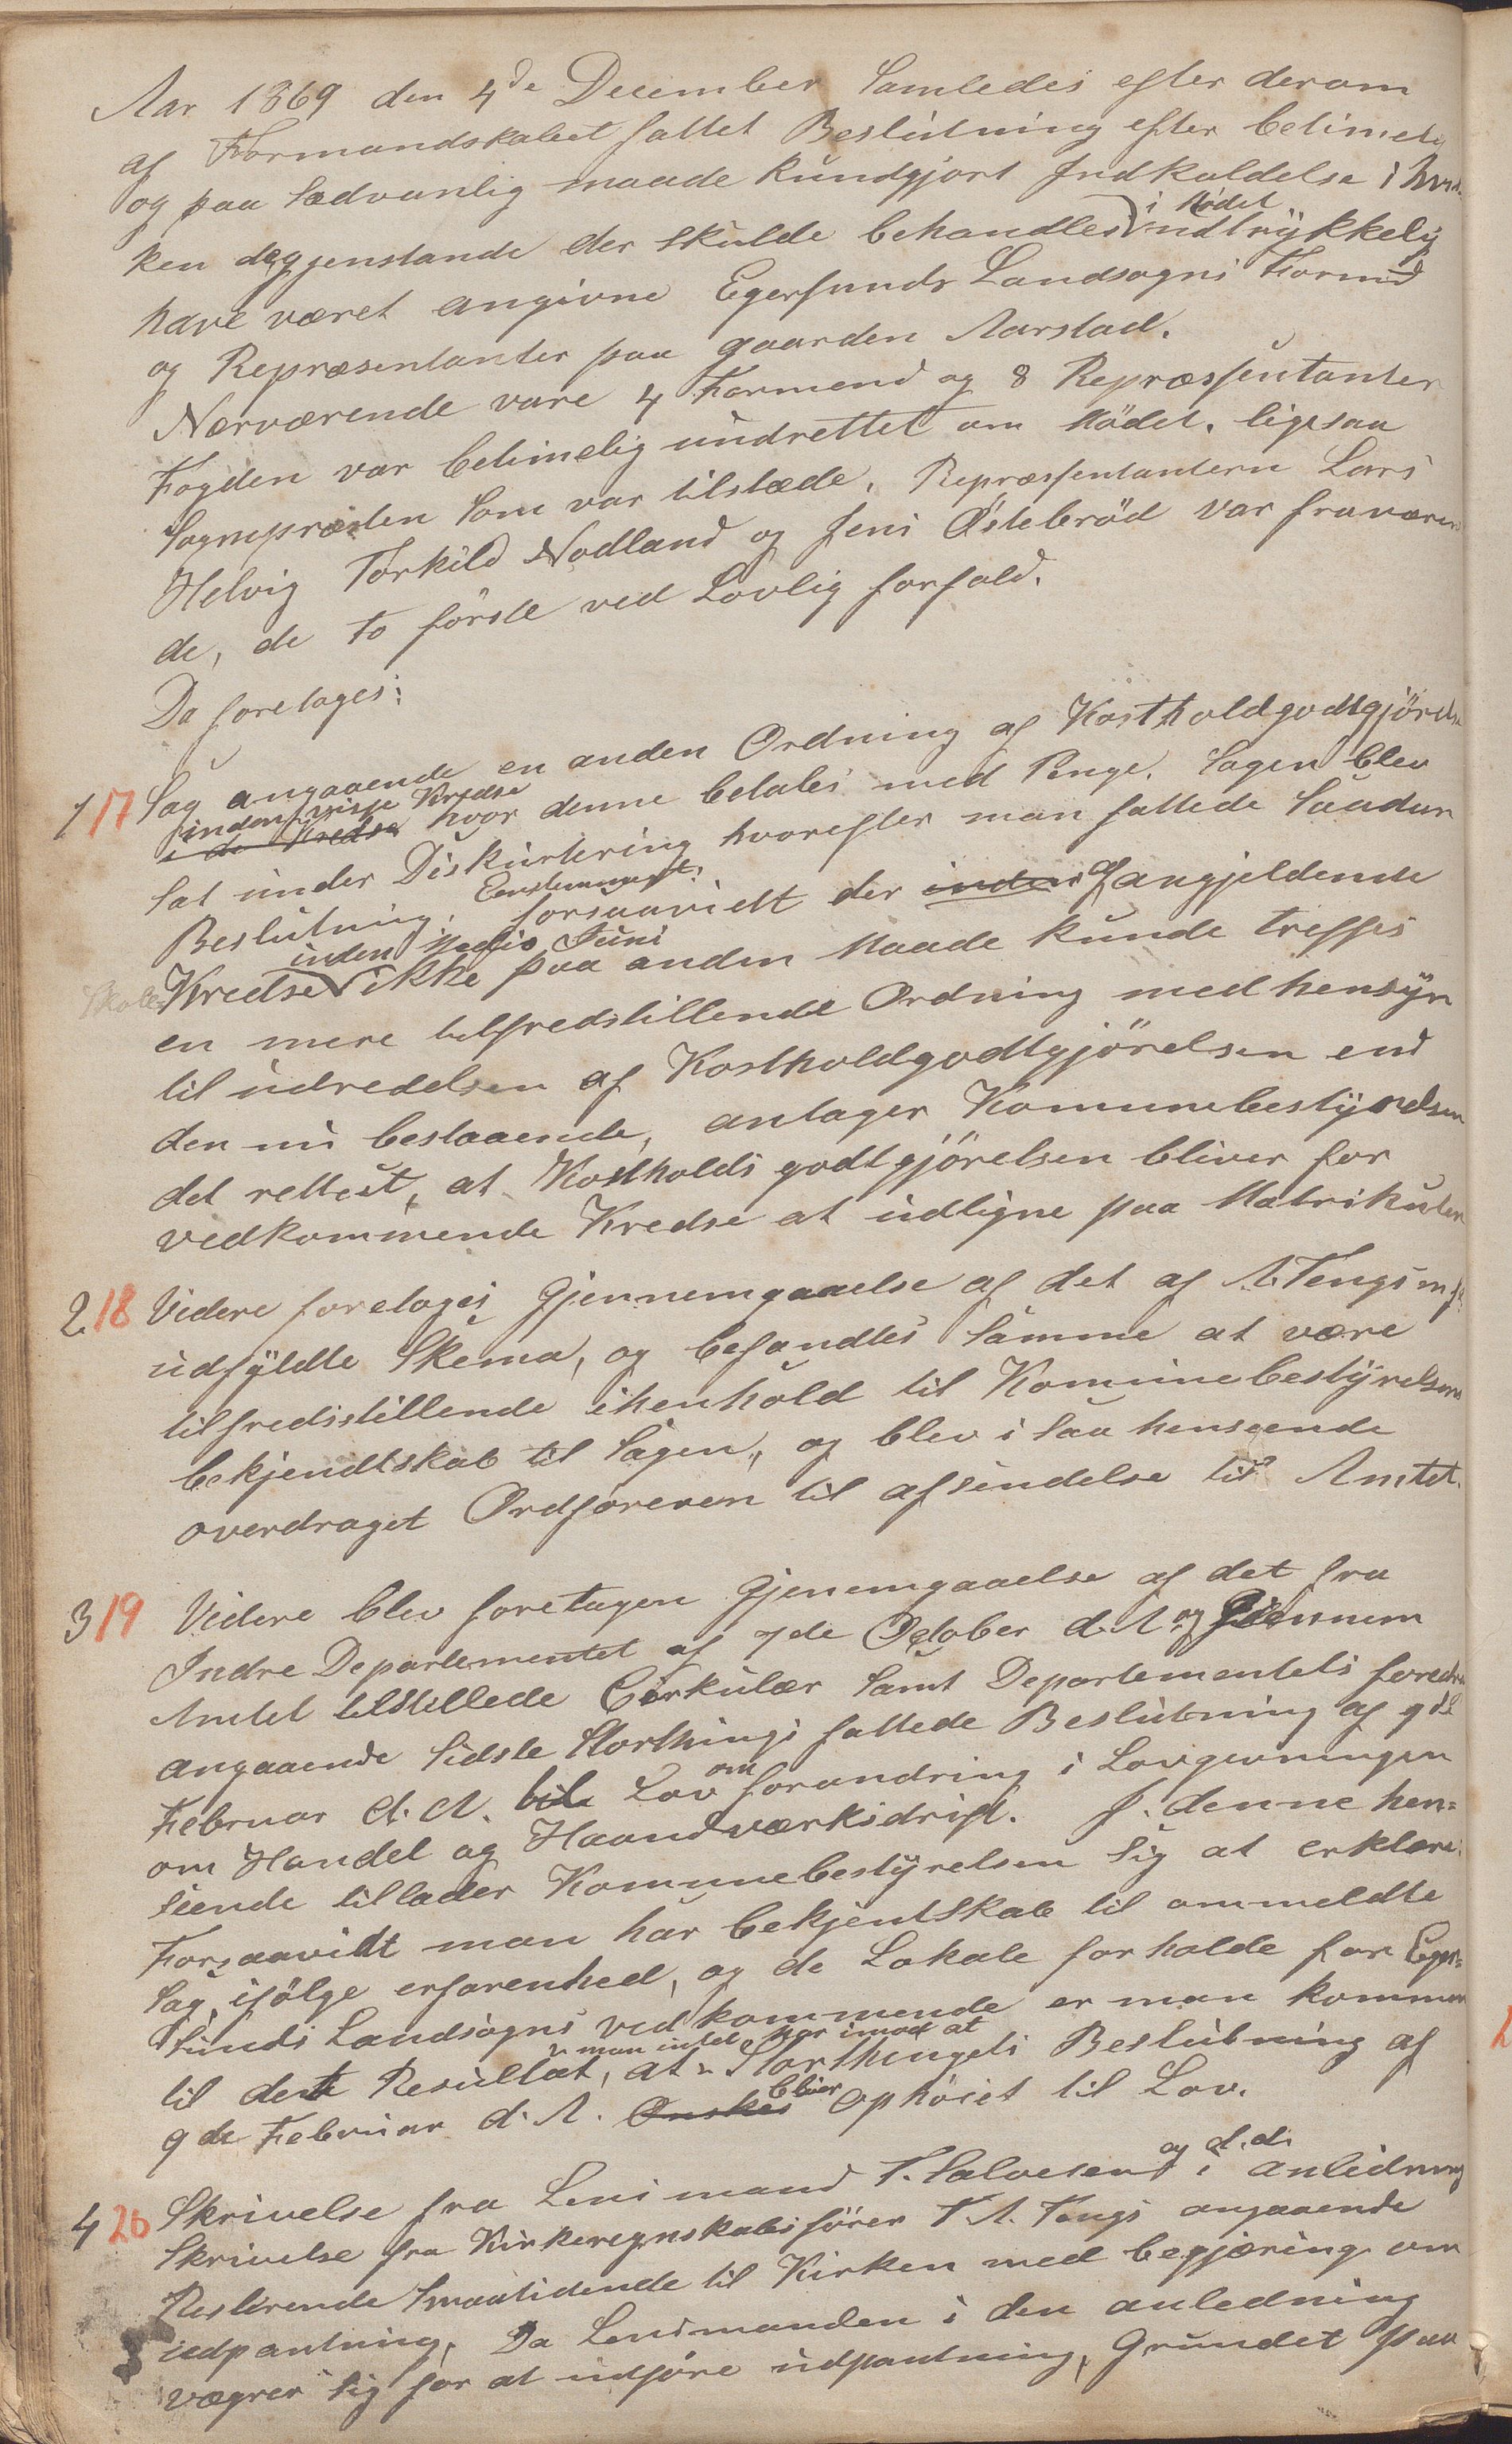 Aar 1869 den 4de December Samledes efter derom
af Formandskabet fattet Beslutning efter betimelig
og paa Sædvanlig maade Kundgjort Indkaldelse i hvil
ken de gjenstande der skulde behandles i Mødet udtrykkelig
have været angivne Egersunds Landsogns Formd
og Repræsentanter paa gaarden Aarstad.
Nærværende vare 4 Formend og 8 Repræssentanter
Fogden var betimelig undrettet om Mödet. ligesaa
Sognepræsten Som var tilstæde. Repræssentantern Lars
Helvig Torkild Nodland og Jens Østebröd var fraværen
de, de to förste ved Lovlig forfald.
Da foretoges:
1 17 Sag angaaende en anden Ordning af Kostholdgodtgjörelse
inden visse Kredse
i de Kredse hvor denne betales med Penge. Sagen blev
Sat under Diskutering hvorefter man fattede Saadan
Beslutning. Eenstemmigt: forsaavidt der inden af angjeldende
Skole Kredse inden Medio Juni ikke paa anden Maade kunde treffes
en mere tilfredstillende Ordning med hensyn
til udredelsen af Kostholdgodtgjörelsen end
den nu bestaaende, antager Komunebestyrelsen
det rettest, at Kostholds godtgjörelsen bliver for
vedkommende Kredse at udligne paa Matrikulen
2. 18 Videre foretoges Gjennemgaaelse af det af A. Tengs m.fl.
udfyldte Skema, og befandtes Samme at være
tilfredistillende ihenhold til Komunebestyrelsens
bekjendtskab til Sagen, og blev i saa henseende
overdraget Ordføreren til afsendelse til Amtet.
3 19 Videre blev foretagen Gjenemgaaelse af det fra
Indre Departementet af 7de October d. A. og Gjennem
Amtet tilstillede Cirkulær Samt Departementets foredra
angaaende Sidste Storthings fattede Beslutning af 9de
Februar d. A. til Lov om forandring i Lovgivningen
om Handel og Haandværksdrift. I denne hen=
seende tillader Komunebestyrelsen Sig at erklære:
Forsaavidt man har bekjentskab til ommeldte
Sag, ifölge erfarenhed, og de Lokale forholde for Eger=
sunds Landsogns vedkommende er man kommen
til dette Resultat, at man intet har imod at Storthingets Beslutning af
9de Februar d. A. Ønskes bliver ophöiet til Lov.
4 20 Skrivelse fra Lensmand T. Salvesen og d. d. i anledning
Skrivelse fra Kirkeregnskabsfører T. A. Tengs angaaende
Resterende Smaatidende til Kirken med begjæring om
udpantning. Da Lensmanden i den anledning
vægrer Sig for at udføre udpantning, Grundet paa